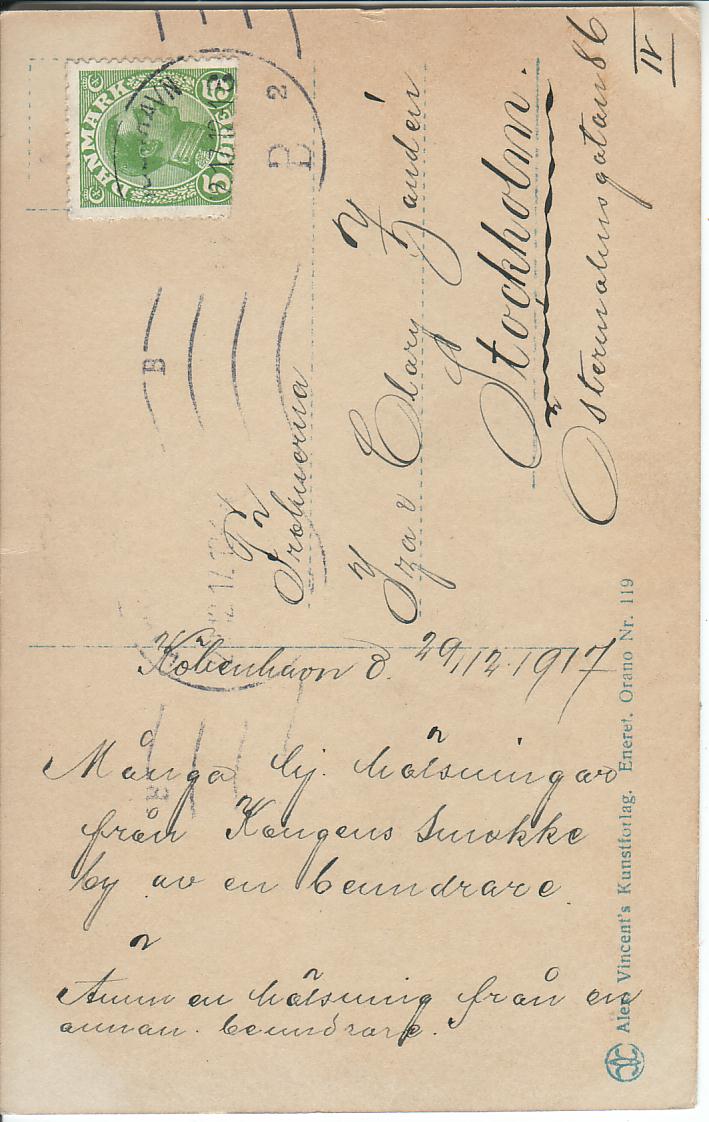 Köbenhavn d. 29/12.1917
Många hj. hälsningar
från Kongens Smukke
by av en beundrare.
Ännu en hälsning från en
annan. beundrare.
Fröknerna
Iza & Clary Zandén
Stockholm.
Östermalmsgatan 86
IV
DANMARK
5 ØRE
B
2
B
B
Alex. Vincent's Kunstforlag. Eneret. Orano Nr. 119